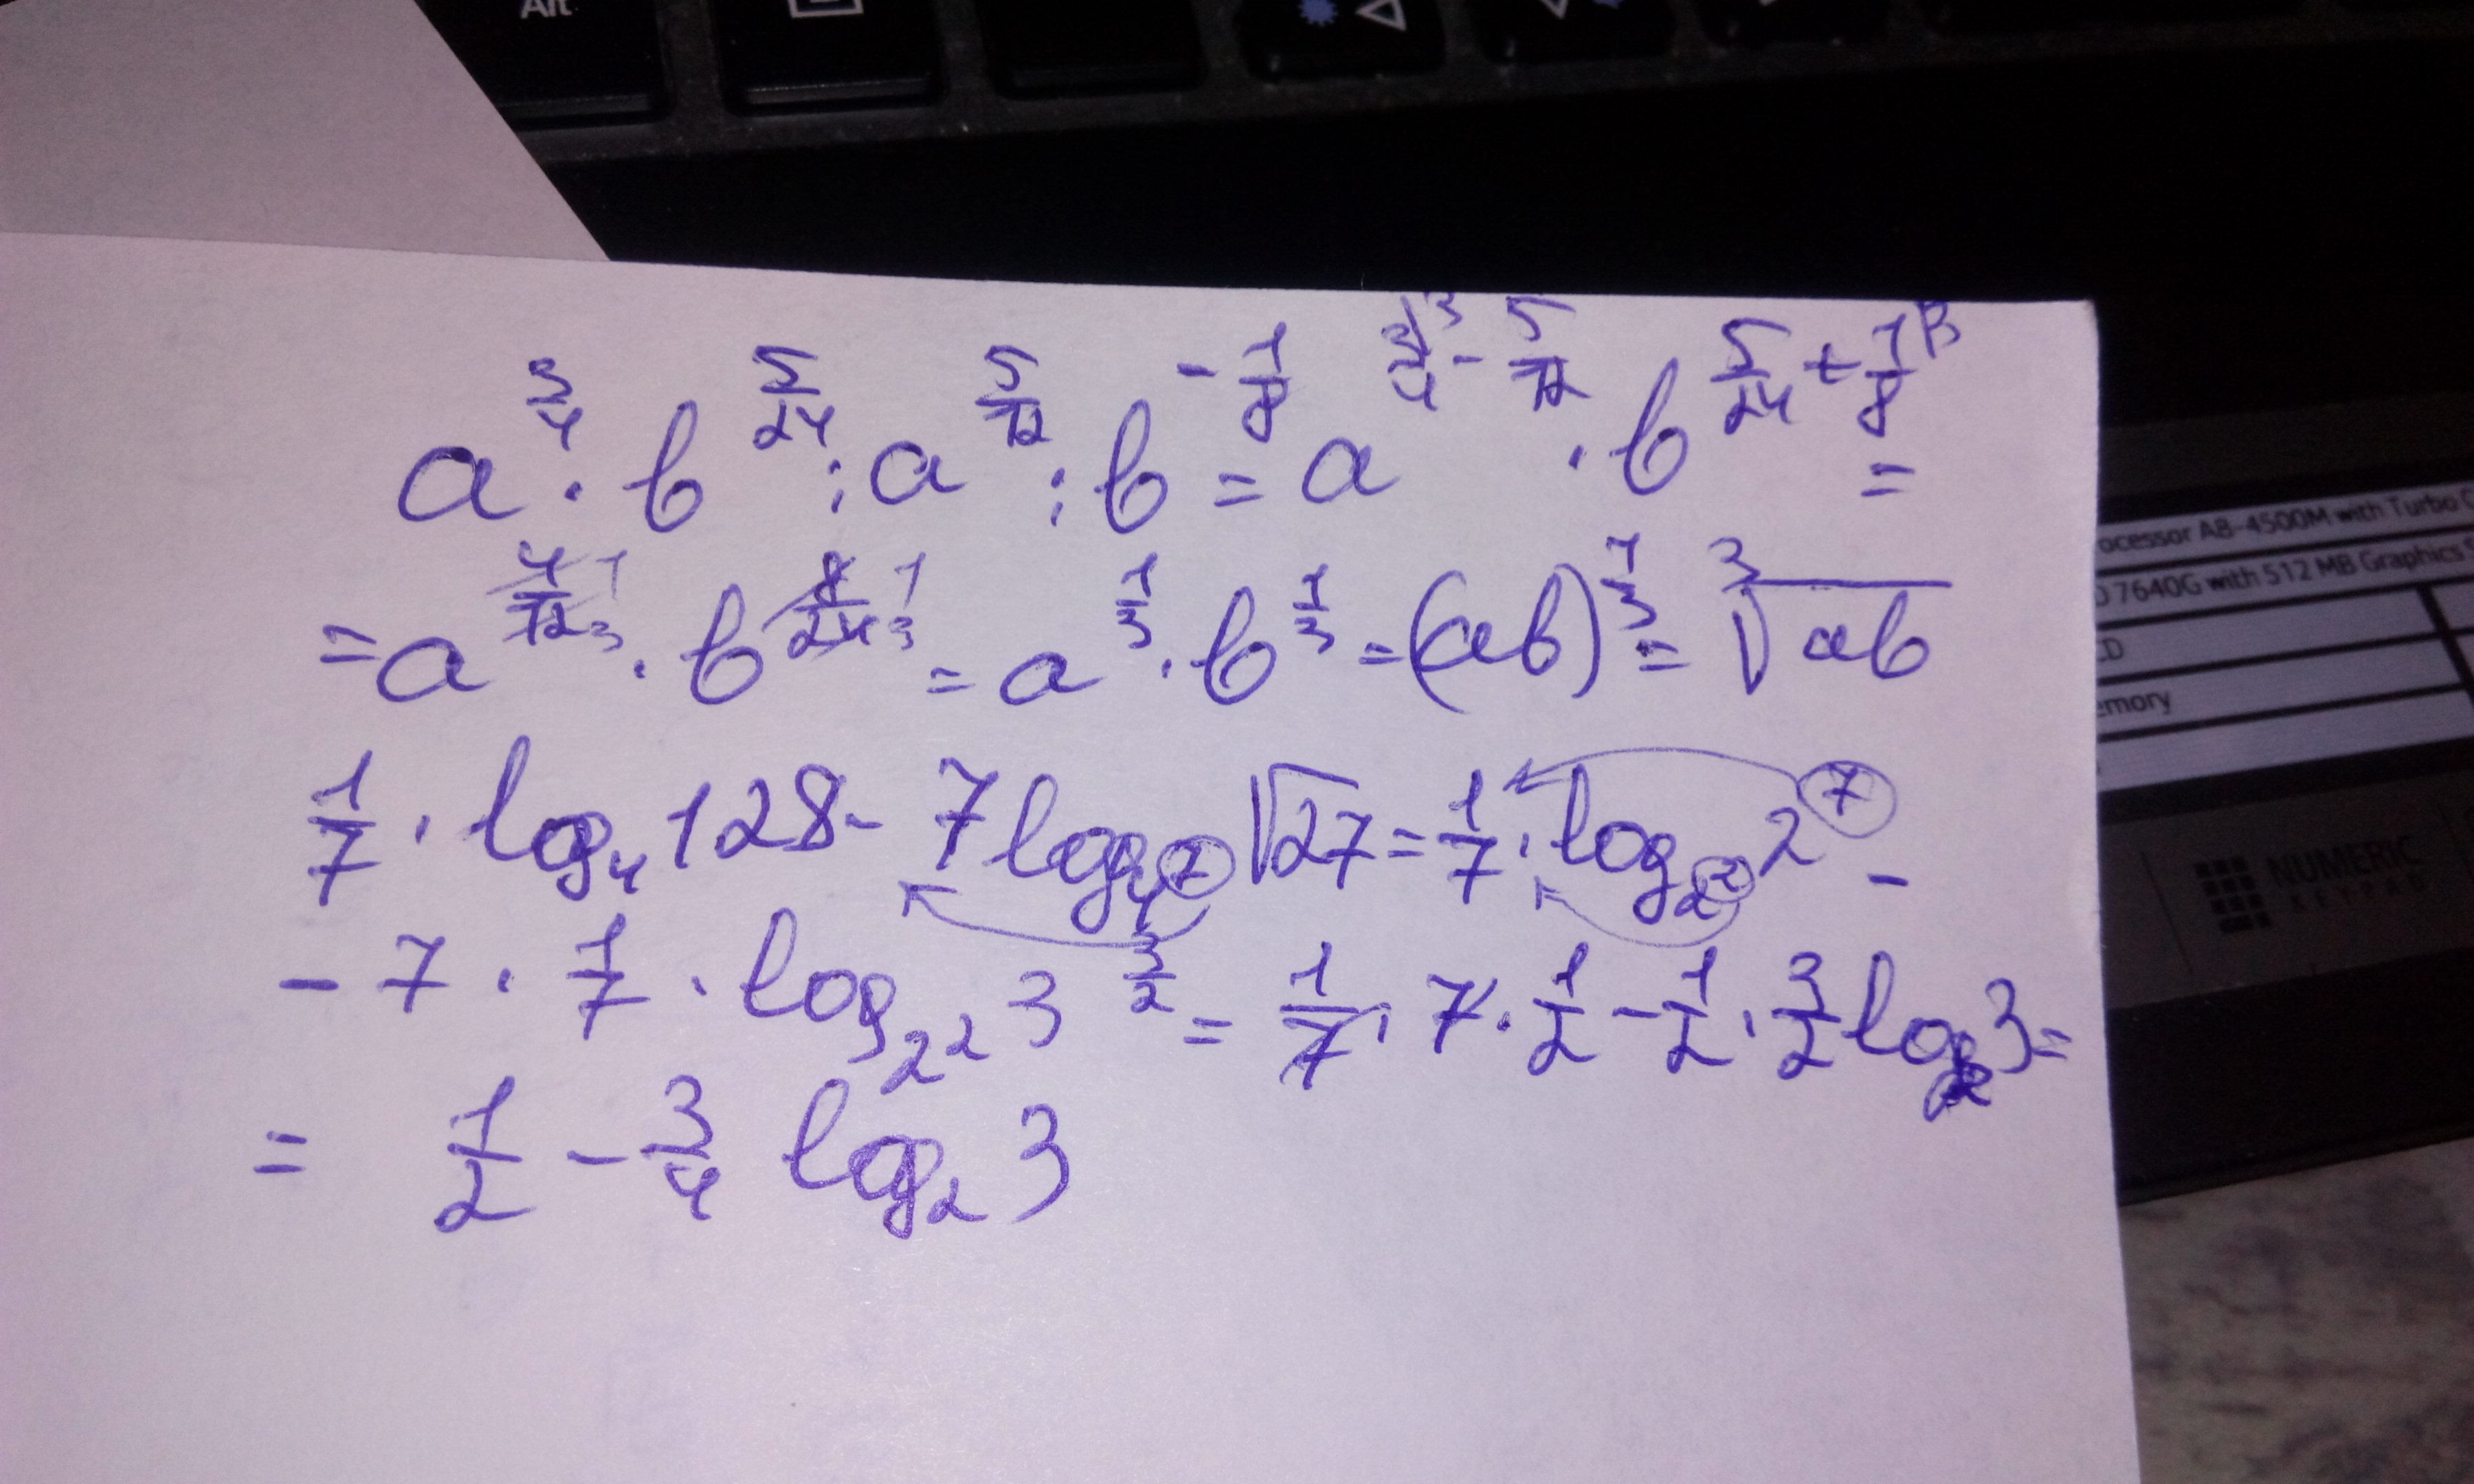 Alt
a^{3/4} · b^{5/24} : a^{5/12} : b^{-1/8} = a^{3/4^{\3} - 5/12} · b^{5/24 + 1/8^{\3}} =
= a^{4/12 1/3} · b^{8/24 1/3} = a^{1/3} · b^{1/3} = (ab)^{1/3} = ∛ab
1/7 · log₄ 128 - 7 log_{4^7} √27 = 1/7 · log_{2^2} 2^7 -
- 7 · 1/7 · log_{2^2} 3^{3/2} = 1/7 · 7 · 1/2 - 1/2 · 3/2 log₂ 3 =
= 1/2 - 3/4 log₂ 3
ocessor A8-4500M with Turbo C
D 7640G with 512 MB Graphics
CD
emory
NUMERIC
KEYPAD